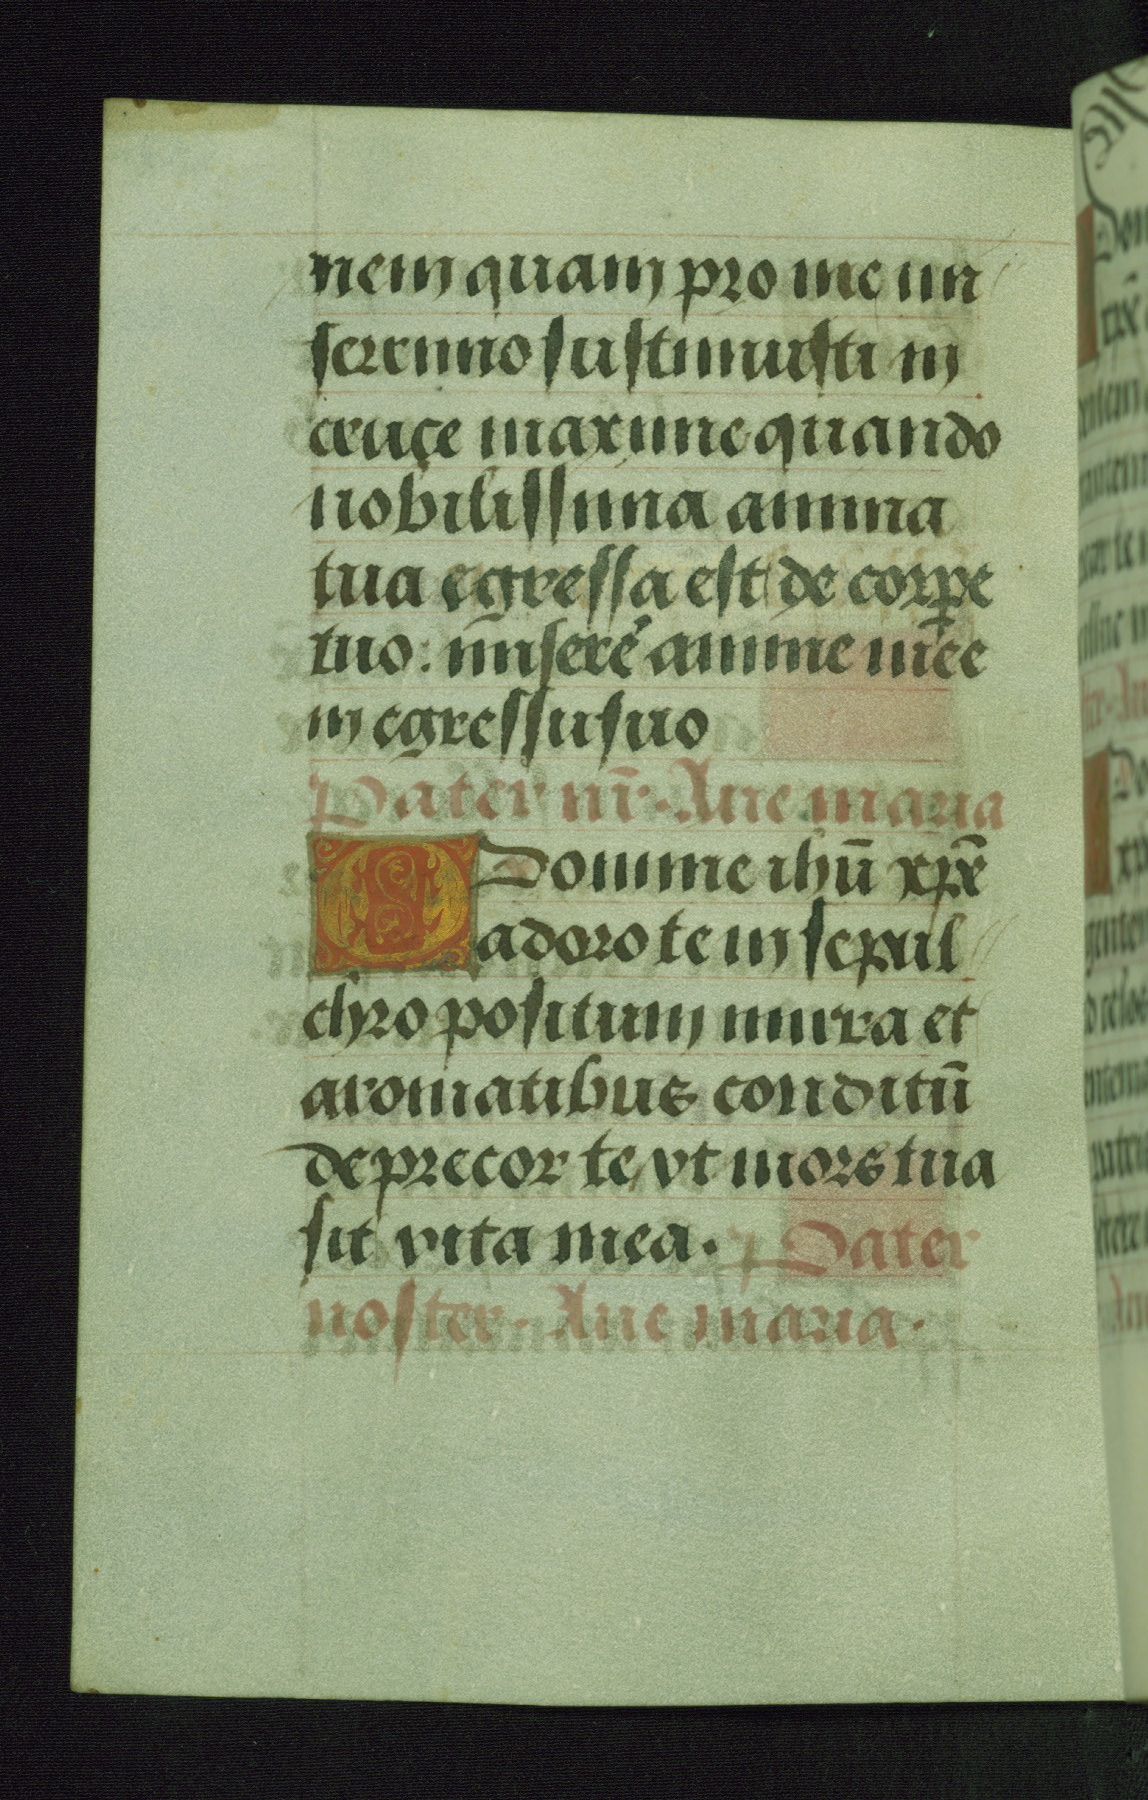 nem quam pro me mi
serrimo sustinuisti in
cruce maxime quando
nobilissima anima
tua egressa est de corpe
tuo: miserē anime mee
in egressu suo
Pater nr̄. Aue maria
O Domine ihū xp̄e
adoro te in sepul
chro positum mirra et
aromatibus conditū
deprecor te vt mors tua
sit vita mea. Pater
noster. Aue maria.